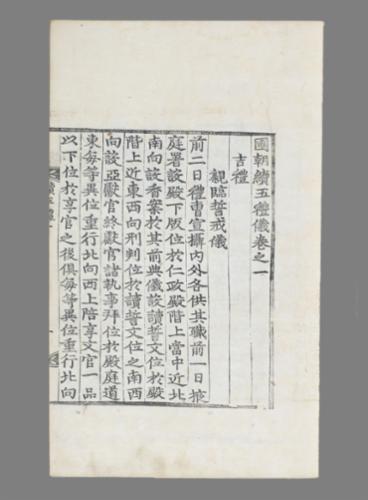 國朝續五禮儀卷之一
吉禮
親臨誓戒儀
前二日禮曹宣攝內外各供其職前一日掖
庭署設殿下版位於仁政殿階上當中近北
南向設香案於其前典儀設讀誓文位於殿
階上近東西向刑判位於讀誓文位之南西
向設亞獻官終獻官諸執事拜位於殿庭道
東每等異位重行北向西上陪享文官一品
以下位於享官之後俱每等異位重行北向